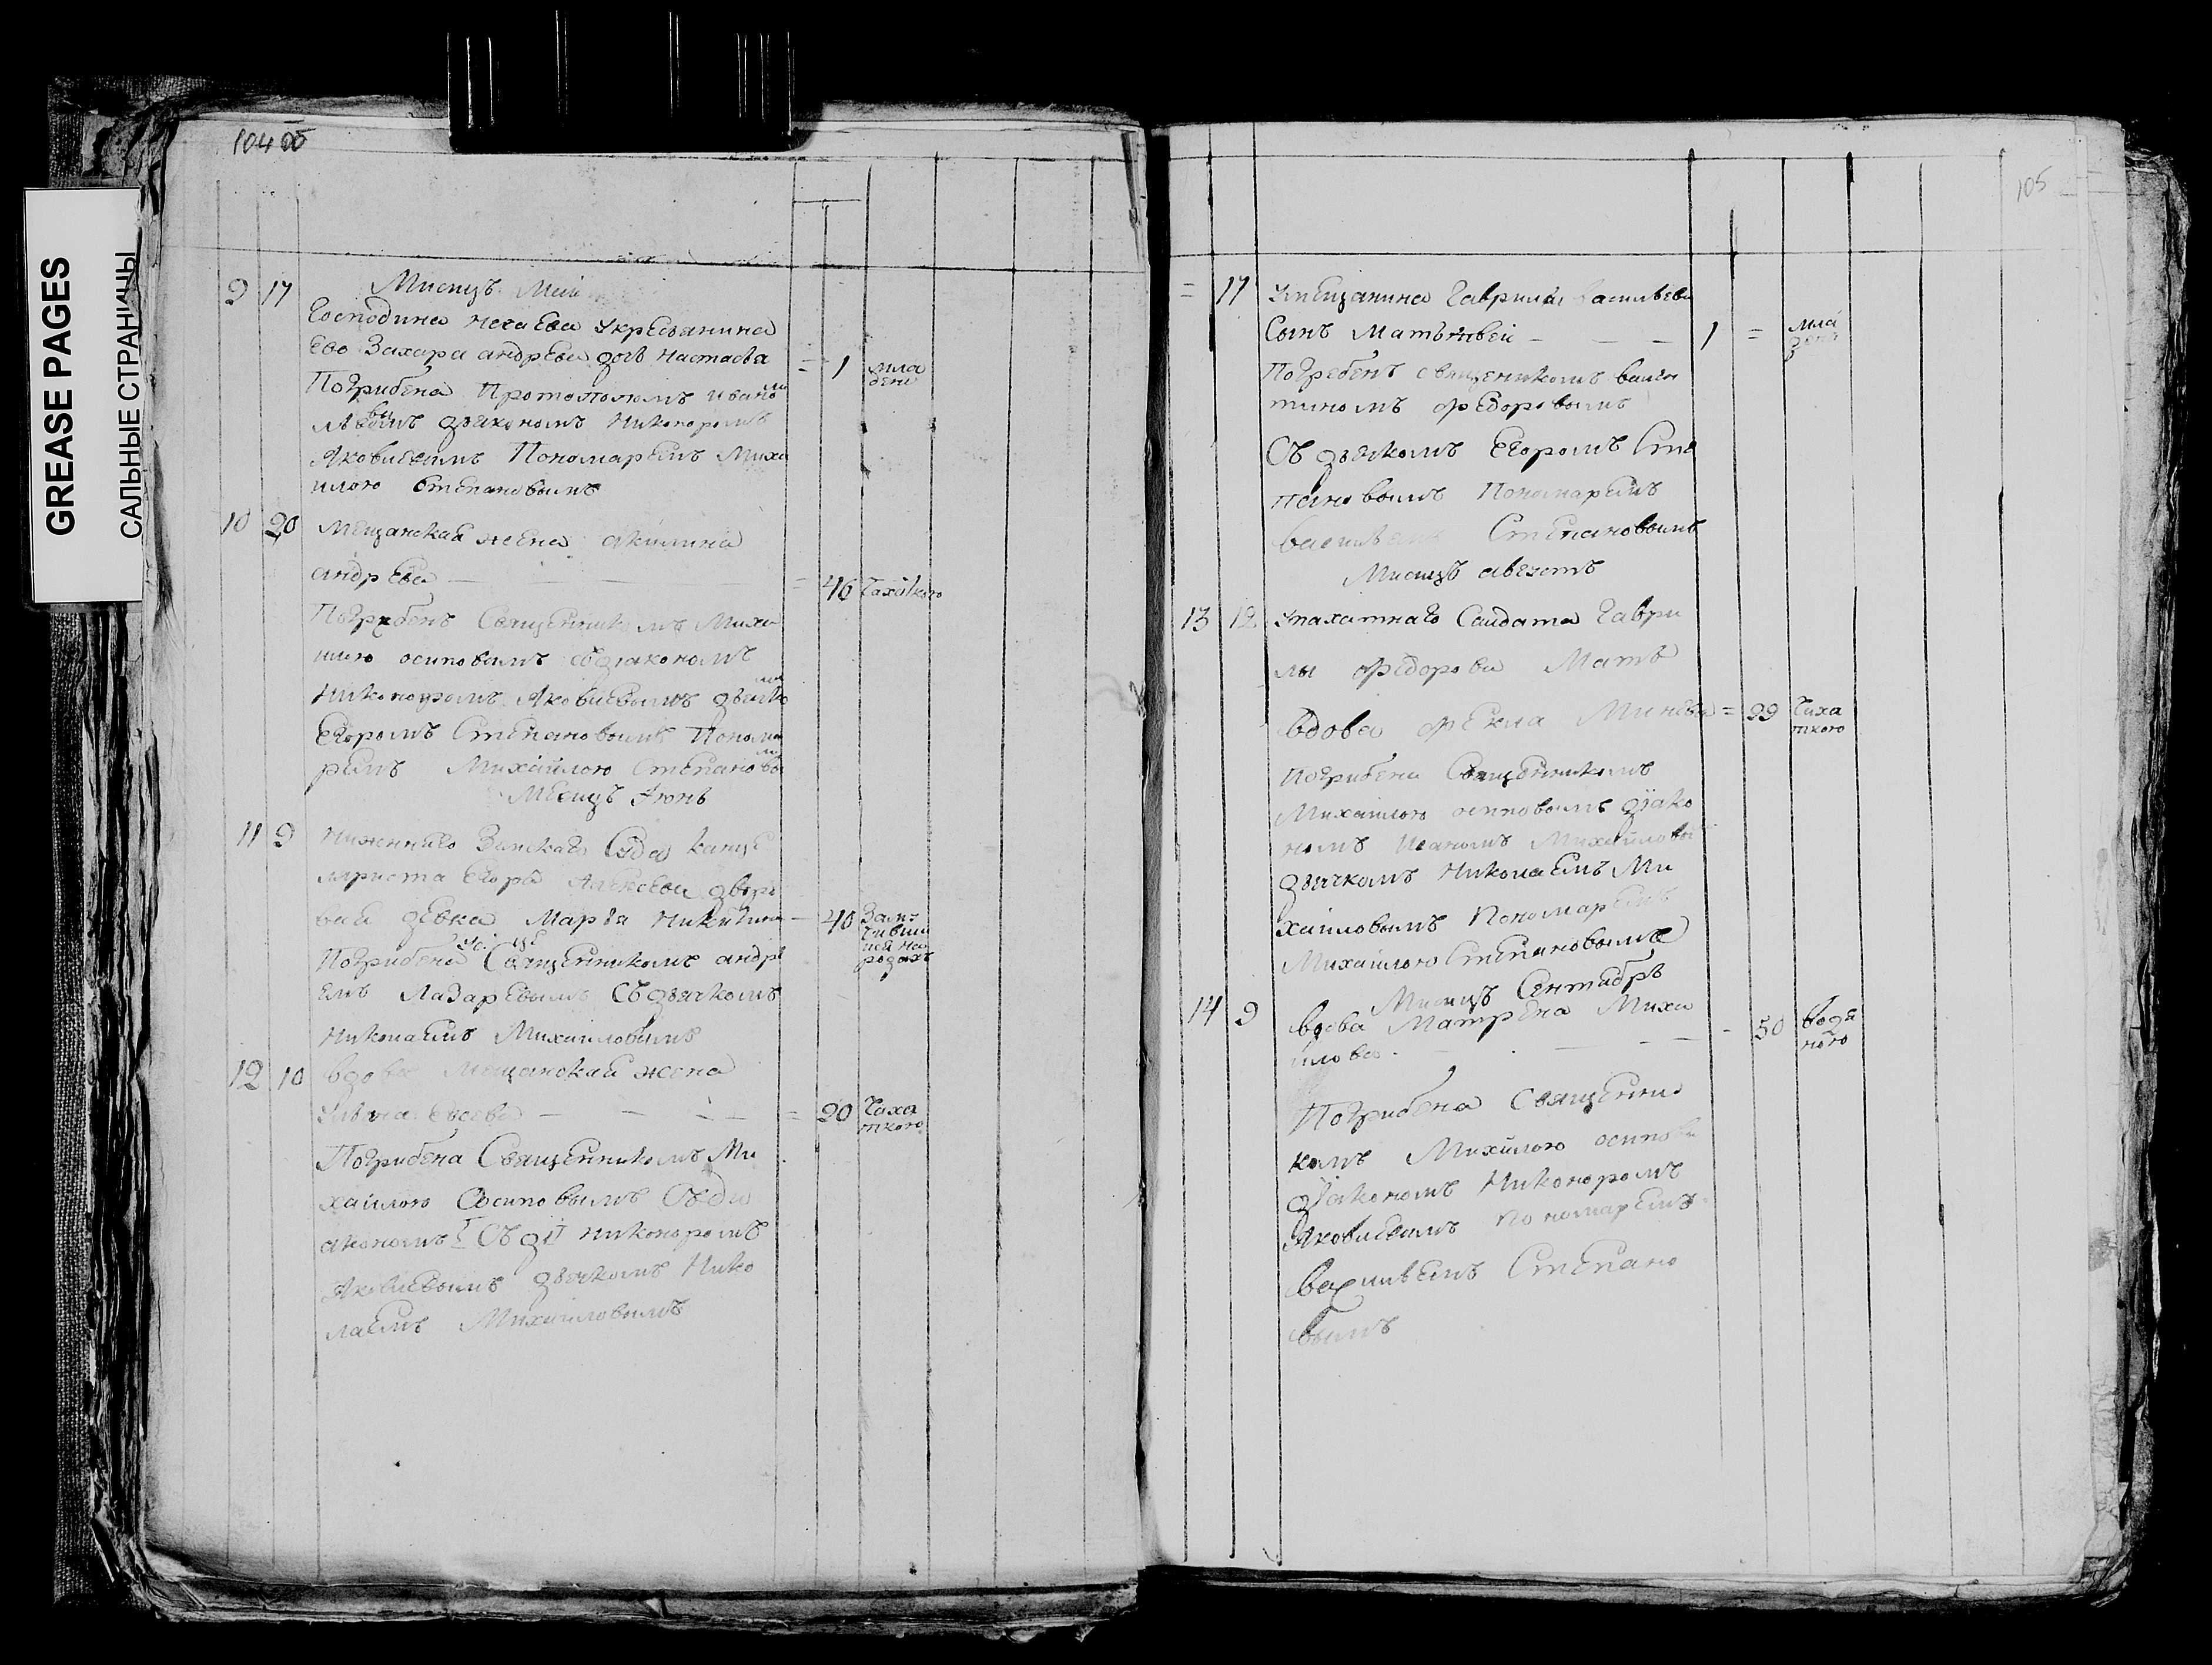 GREASE PAGES
САЛЬНЫЕ СТРАНИЦЫ
104 об
9 17 Мисицъ Маи
Господина Нечаева укресьянина
Ево Захара андрѣева дочь настасья = 1 мла
дени
Погрибена Протопопомъ ивано
дьякономъ Никоноромъ
Яковлевымъ Пономаремъ Миха
илою степановымъ
10 20 Мещанская жена акилина
андрѣева = 46 чахоткою
Погрибенъ Священникомъ Миха
илою осиповымъ дьякономъ
Никоноромъ Яковлевымъ дьячко
Егоромъ Степановымъ Понома
ремъ Михайлою Степановы
Месицъ Июнь
11 9 Нижниго Земскаго Суда канце
ляриста Егора Алексѣева дворо
вая дѣвка Марья Никитина 40
родахъ
Погрибена Священникомъ андрѣ
емъ Лазаревымъ Съ дьячкомъ
Николаемъ Михаиловымъ
12 10 вдова Мещанская жена
= 20 Чахо
ткою
Погрибена Священникомъ Ми
хаилою Осиповымъ Съ ди
акономъ Никоноромъ
Яковлевымъ дьячкомъ Нико
лаемъ Михаиловымъ
105
= 17 Умещанина Гаврилы Васильева
Сынъ Матьфвей 1 = мла
дени
Погребенъ священикомъ вален
тиномъ федоровымъ
Съ дьячкомъ Егоромъ Сте
пановымъ Пономаремъ
Васильемъ Степановымъ
Мисицъ августъ
13 12 Упахатнаго Салдата Гаври
лы федорова Мать
вдова фекла Минева = 29 Чаха
ткою
Погрибена Священникомъ
Михаилою осиповымъ дїако
номъ Иваномъ Михайловы
дьячкомъ Николаемъ Ми
хаиловымъ Пономаремъ
Михайлою Степановымъ
Мисицъ Сентябръ
14 9 вдова Матрена Миха
илова 50 водя
ною
Погрибена Священни
комъ Михайлою осипов
дїакономъ Никоноромъ
Яковлевымъ Пономаремъ
Васильемъ Степано
вымъ